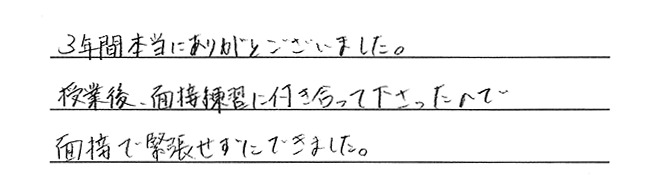 3年間本当にありがとございました。
授業後、面接練習に付き合って下さったので
面接で緊張せずにできました。